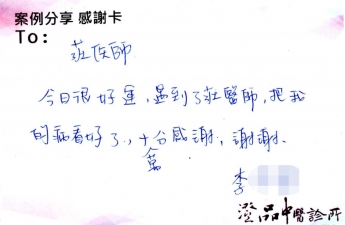 案例分享 感謝卡
To：
莊醫師
今日很好運，遇到了莊醫師，把我
的病看好了，十萬台感謝，謝謝。
李
澄品中醫診所